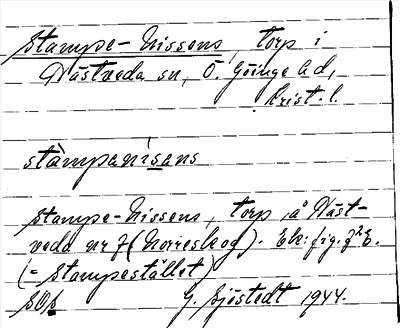 Stampe-Nissens, torp i
Nästveda sn, Ö. Göinge hd,
Krist. l.
stàmpanisans
Stampe-Nissens, torp å Näst-
veda nr 7 (Norreskog). Ek: fig. f²E.
(= Stampestället)
SOS G. Sjöstedt 1944.